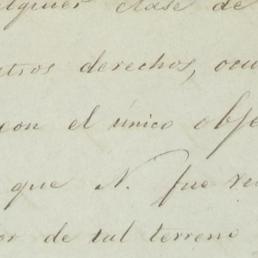 alquier clase de
stros derechos, ocu
con el único obje
que N. fue ve
or de tal terreno